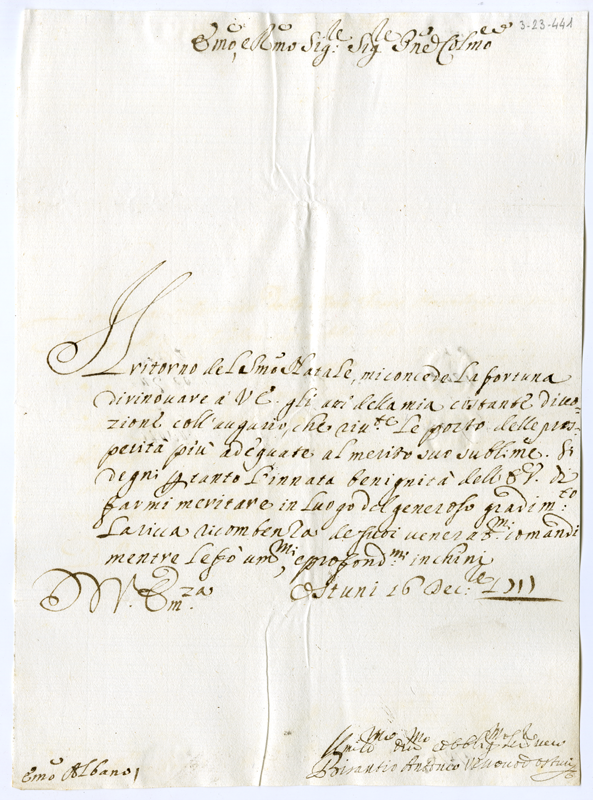 3-23-441
Emo, e Rmo Sig.re Sig.re Pne Colmo
Il ritorno del Smo Natale, mi concede la fortuna
di rinouare à V.E. gli atti della mia costante diuo-
zione coll'augurio, che riu.te Le porto delle pros-
perità più adequate al merito suo sublime. Si
degni p tanto l'innata benignità dell'E.V. di
farmi meritare in luogo del generoso gradim.to
La ricca ricompenza de suoi venerat.mi comandi
mentre le fò um.mi, e profond.mi inchini
D V. Em.za Ostuni 16 Dec.le 1711
Emo Albano
Um.mo Diu.mo obblig.mo Ser.re vero
Bisantio Antonio Vescouo d'Ostuni